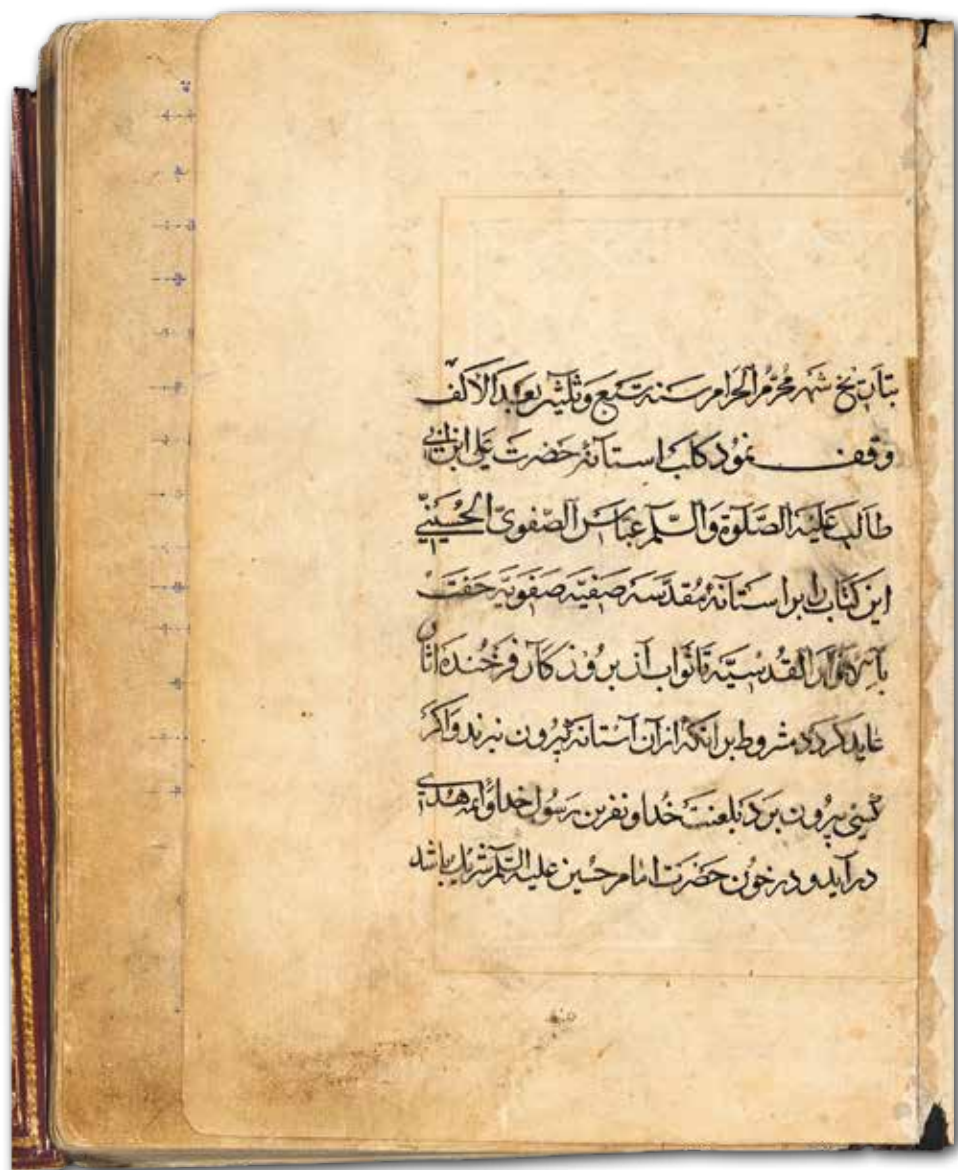 بتاریخ شهر محرم الحرام سنه سبع و ثلثین بعد الالف
وقف نمود کلب استانهٔ حضرت علی ابن ابی
طالب علیه الصلوة والسلم عباس الصفوی الحسینی
این کتاب را بر استانهٔ مقدسه صفیه صفویه حفت
بالانوار القدسیة تا ثواب آن بروزگار فرخنده اثار
عاید کردد مشروط بر انکه از آن آستانه بیرون نبرند و اکر
کسی بیرون برد بلعنت خدا و نفرین رسول خدا و ائمه هدی
در آید و در خون حضرت امام حسین علیه السلم شریک باشد